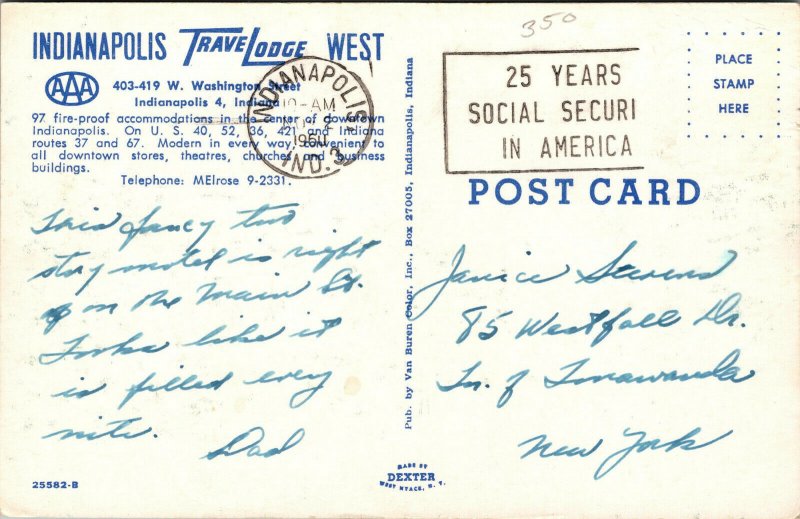 350
INDIANAPOLIS TRAVELODGE WEST
AAA
403-419 W. Washington Street
Indianapolis 4, Indiana
97 fire-proof accommodations in the center of downtown
Indianapolis. On U. S. 40, 52, 36, 421 and Indiana
routes 37 and 67. Modern in every way, convenient to
all downtown stores, theatres, churches and business
buildings.
Telephone: MElrose 9-2331.
INDIANAPOLIS
AM
1960
IND. 3
25 YEARS
SOCIAL SECURI
IN AMERICA
PLACE
STAMP
HERE
POST CARD
This fancy two
story motel is right
on the main St.
Looks like it
is filled every
nite.
Dad
Pub. by Van Buren Color, Inc., Box 27005, Indianapolis, Indiana
Janice Stevens
85 Westfall Dr.
Tn. of Tonawanda
New York
25582-B
MADE BY
DEXTER
WEST NYACK, N. Y.